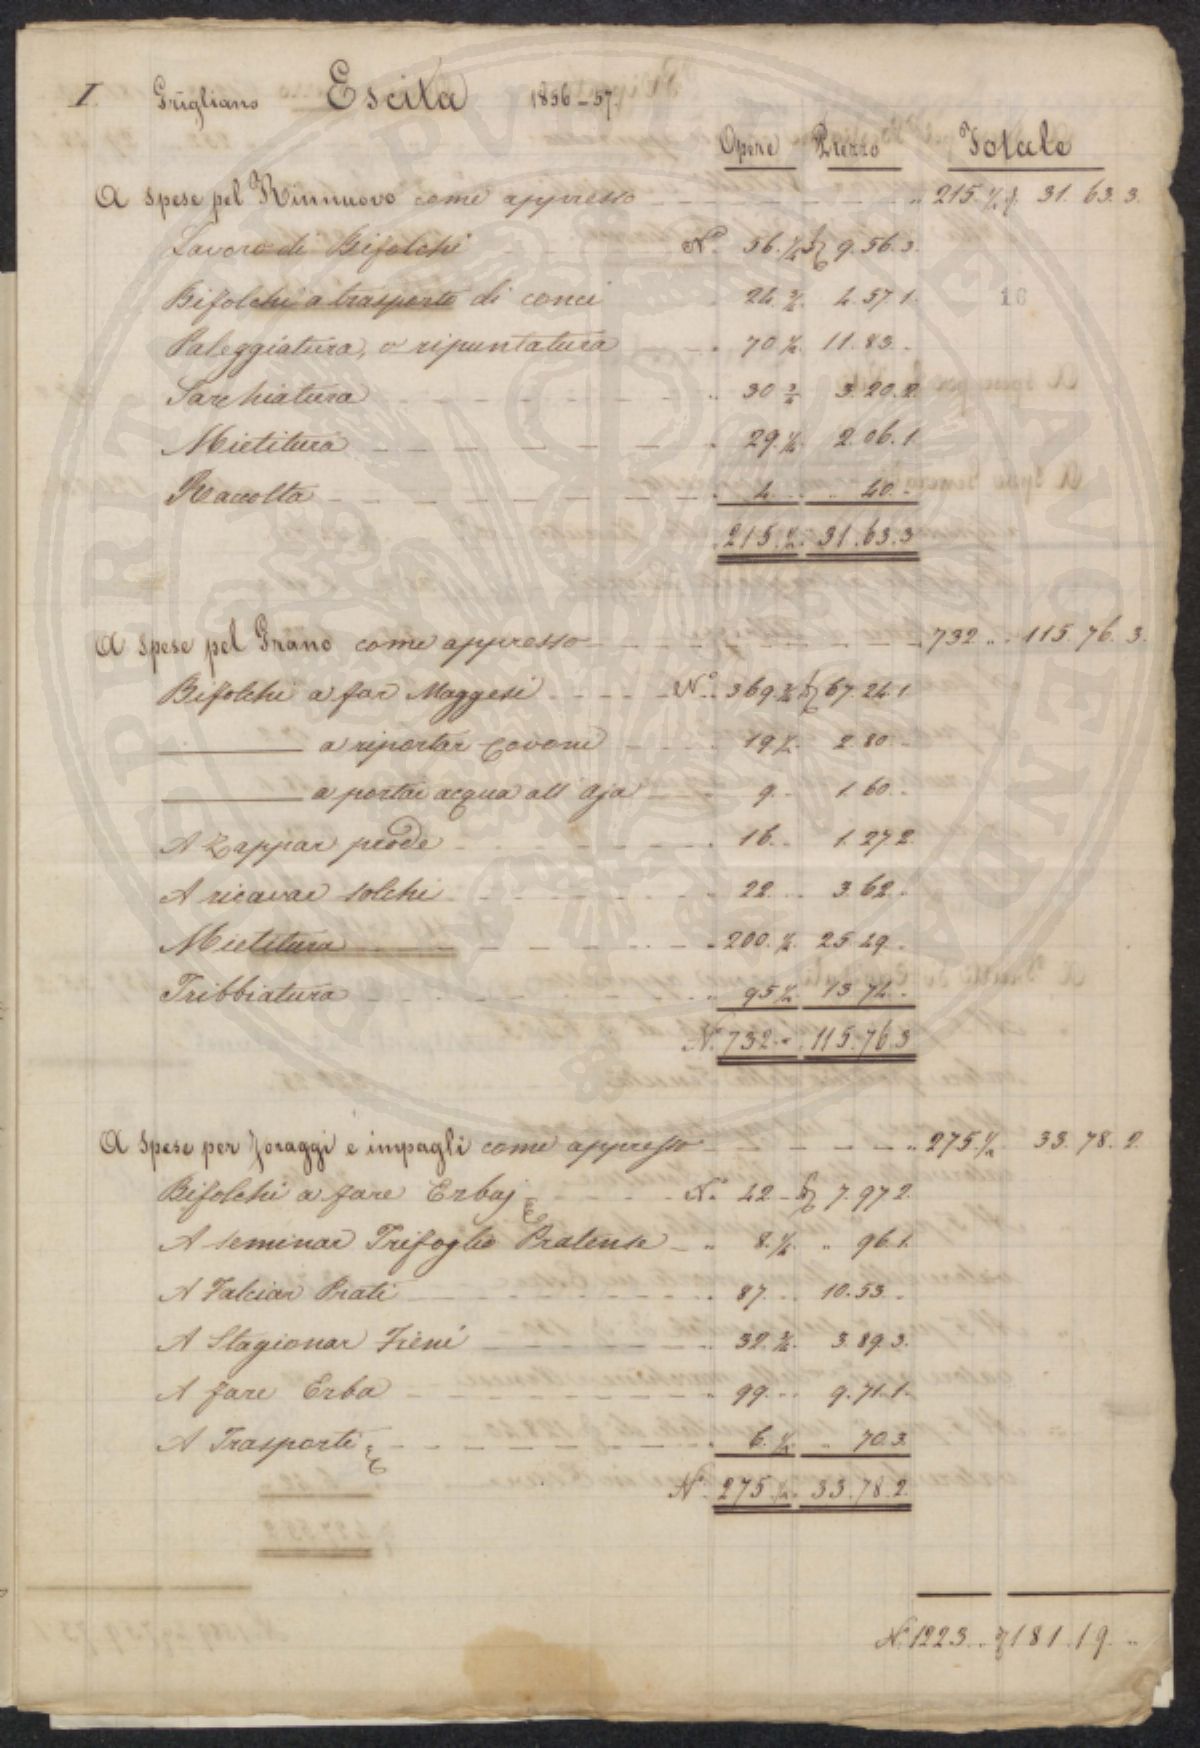 I. Grigliano Escita 1856-57.
Opere Prezzo Totale
A Spese pel Rinnuovo come appresso 215.½ 31.63.3.
Lavoro di Bifolchi N.° 56.½ 9.56.3.
Bifolchi a trasporto di conci 24. 4.57.1. 10
Paleggiatura, o ripuntatura 70½. 11.83.
Sarchiatura 30 3.20.2.
Mietitura 29. 2.06.1.
Raccolta 4. 40.
215.½. 31.63.3
A Spese pel Grano come appresso 732 115.76.3.
Bifolchi a far Maggesi N.° 369. 67.24.1
a riportar Covoni 19½. 2.80.
a portar acqua all'Aja 9. 1.60.
A Zappar prode 16. 1.27.2
A ricavar solchi 22. 3.62.
Mietitura 200.½. 25.49.
Tribbiatura 95½. 13.72.
N.° 732. 115.76.3
A Spese per foraggi e impagli come appresso 275.½ 33.78.2.
Bifolchi a fare Erbaj N.° 42 7.97.2.
A seminar Trifoglio Pratense 8.½. 96.1.
A Falciar Prati 87. 10.53.
A Stagionar Fieni 32. 3.89.3.
A fare Erba 99. 9.71.1.
A Trasporti 6. 70.3.
N.° 275.½. 33.78.2.
N.° 1223. 181.19.